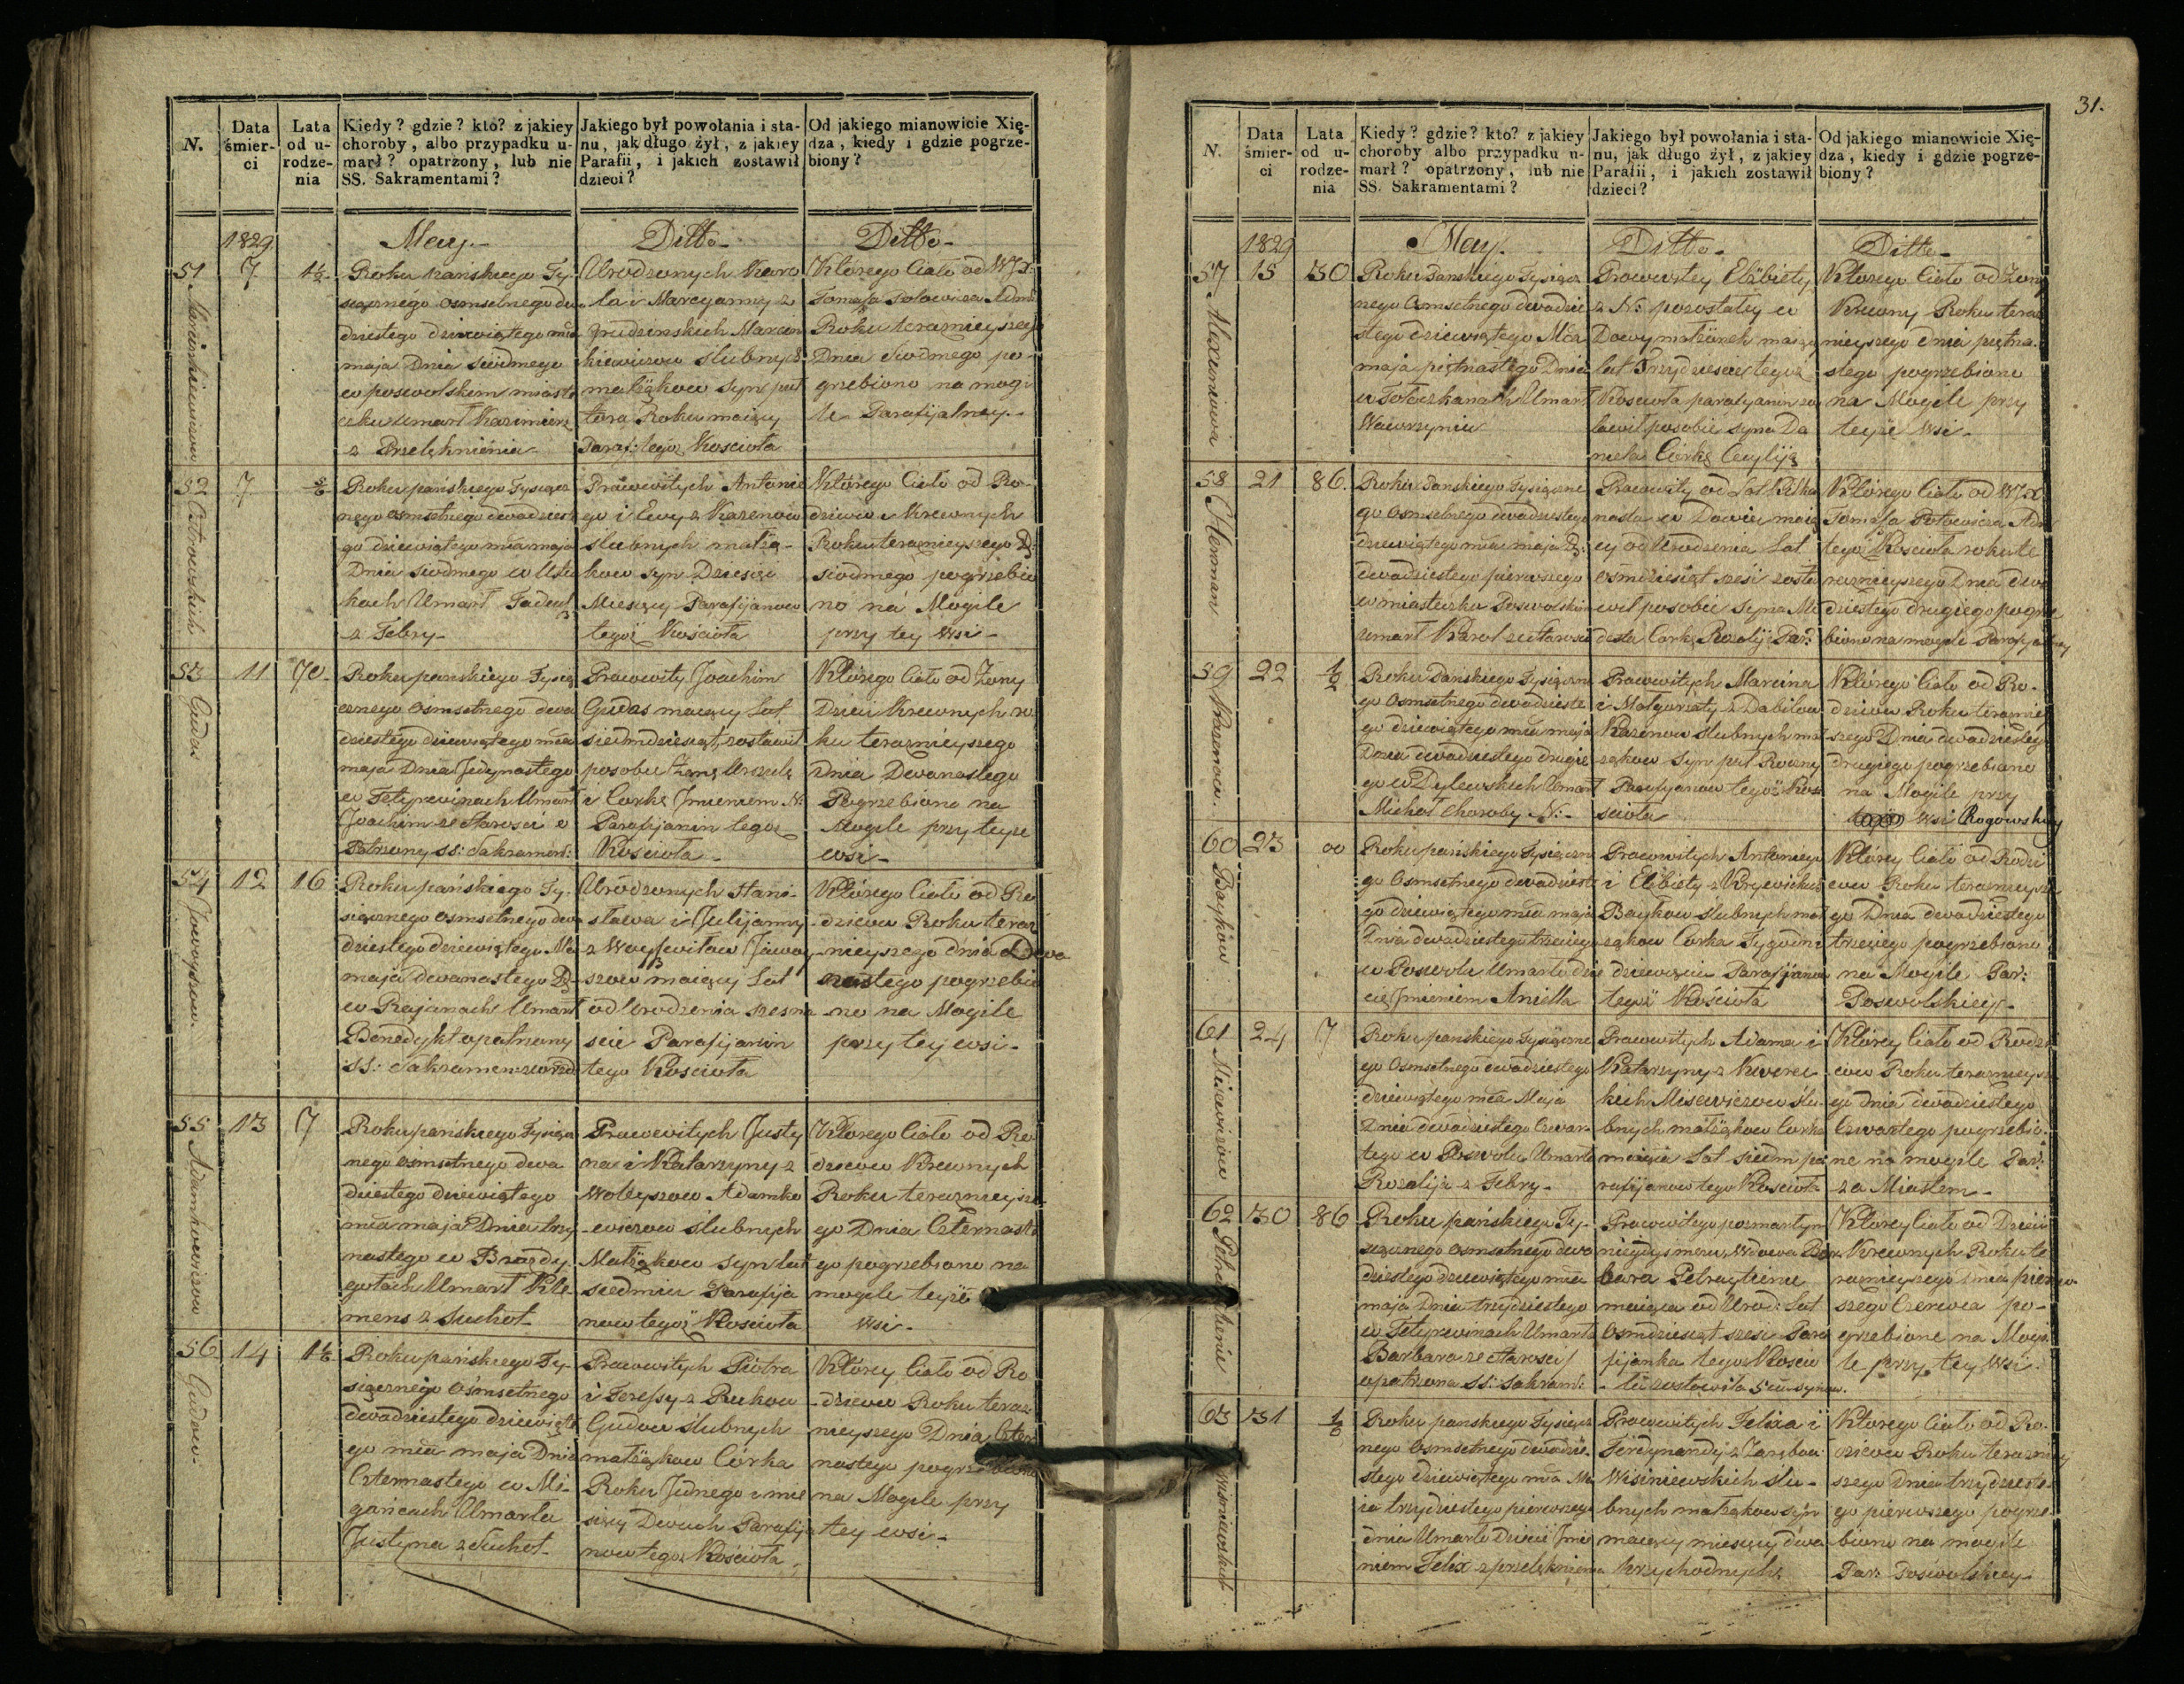 N.
Data śmier-ci
Lata od u-rodze-nia
Kiedy? gdzie? kto? z jakiey
choroby, albo przypadku u-
marł? opatrzony, lub nie
SS. Sakramentami?
Jakiego był powołania i sta-
nu, jak długo żył, z jakiey
Parafii, i jakich zostawił
dzieci?
Od jakiego mianowicie Xię-
dza, kiedy i gdzie pogrze-
biony?
1829
May.
Ditto
Ditto
51
7
1½
Roku pańskiego Ty-
dziestego dziewiątego
maja Dnia siódmego
w poswolskim miaste
czku umarł Kazimierz
z Przelęknienia
Urodzonych Karo
la i Marcyanny z
hiewiczow slubnych
małżąkow syn puł
tora Roku maiący
Paraf: tegoż Kościoła
Którego Ciało od WJX:
Roku teraznieyszego
Dnia Siodmego po-
grzebiono na mogi
le Parafijalney
52
7
Roku pańskiego Tysiącz
nego osmsetnego dwadzieste
go dziewiątego maja
Dnia siodmego w
Umarł Tadeusz
z Febry
Pracowitych Antonie
go i Ewy z Kazenow
slubnych małżą-
kow syn Dziesięci
Miesięcy Parafijanow
tegoż Kościoła
Którego Ciało od Ro-
dzicow i Krewnych
Roku teraznieyszego D:
siodmego pogrzebio
no na Mogile
przy tey wsi
53
Gudas
11
70
Roku pańskiego Tysią
cznego osmsetnego dwa
dziestego dziewiątego
maja Dnia Jedynastego
w Tetyrwinach Umarł
Joachim ze starosci o
patrzony SS: Sakrament:
Pracowity Joachim
Gudas maiący Lat
siedmdziesiąt, zostawił
posobie Żonę Urszulę
i Corkę Jmieniem N:
Parafijanin tegoż
Kościoła
Którego Ciało od Żony
Dzieci Krewnych ro
ku teraznieyszego
Dnia Dwonastego
Pogrzebiono na
Mogile przy teyże
wsi
54
12
16
Roku pańskiego Ty-
siącznego osmsetnego dwa
dziestego dziewiątego
maja dwanastego D:
w Rajunach Umarł
Benedykt opatrzony
Urodzonych Stani-
sława i Julijanny
z Woyswiłow
szow maiący Lat
od Urodzenia szesna
scie Parafijanin
tego Kościoła
Którego Ciało od Ro
dzicow Roku teraz
nieyszego dnia dwa
nastego pogrzebio
no na Mogile
przy tey wsi
55
Adamkowiczow
13
7
Roku pańskiego Tysiącz
nego osmsetnego dwa
dziestego dziewiątego
maja Dnia trzy
nastego w
Umarł Kle
mens z Suchot
Pracowitych Justy
na i Katarzyny z
Woleyszow Adamko
wiczow slubnych
Małżąkow syn lat
siedmiu Parafija
now tegoż Kościoła
Którego Ciało od Ro
dzicow Krewnych
Roku teraznieysze
go Dnia Czternaste
go pogrzebiono na
mogile teyże
wsi
56
Gudow
14
Roku pańskiego Ty-
siącznego osmsetnego
dwadziestego dziewiąte
go maja Dnia
Czternastego w Mi-
gańcach Umarła
Justyna z Suchot
Pracowitych Piotra
i Teressy z Rukow
Gudow slubnych
małżąkow Córka
Roku Jednego i mie
sięcy Dwuch Parafija
now tegoż Kościoła
Którey Ciało od Ro
dzicow Roku teraz-
nieyszego Dnia Czter
nastego pogrzebiono
na Mogile przy
tey wsi
31.
N.
Data śmier-ci
Lata od u-rodze-nia
Kiedy? gdzie? kto? z jakiey
choroby albo przypadku u-
marł? opatrzony, lub nie
SS. Sakramentami?
Jakiego był powołania i sta-
nu, jak długo żył, z jakiey
Parafii, i jakich zostawił
dzieci?
Od jakiego mianowicie Xię-
dza, kiedy i gdzie pogrze-
biony?
1829
May.
Ditto
Ditto
57
15
30
Roku Pańskiego Tysiącz
nego Osmsetnego dwadzie
stego dziewiątego
maja piętnastego Dnia
Umarł
Wawrzyniec
Pracowitey Elżbiety
z N: pozostałey w
Dowy małżonek maiący
lat Trzydziescie tegoż
Kościoła parafijanin zo
stawił posobie syna Da
niela Córkę Cecyliją
Którego Ciało od Żony
Krewny Roku teraz
nieyszego dnia piętna-
stego pogrzebiono
na Mogile przy
teyże Wsi
58
Herman
21
86.
Roku Pańskiego Tysiączne
go Osmsetnego dwadziestego
dziewiątego maja D:
dwadziestego pierwszego
w miasteczku Poswolskim
umarł Karol ze starosci
Pracowity od Lat Kilku
nastu w Dowiec maią
cy od Urodzenia Lat
osmdziesiąt szesć zosta
wił posobie syna
Corkę Rozaliją Par:
Którego Ciało od WJX
tegoż Kościoła roku te
raznieyszego Dnia dwa
dziestego drugiego pogrze
biono na mogile Parafijalney
59
Kazenow
22
½
Roku Pańskiego Tysiączne
go Osmsetnego dwadzieste
go dziewiątego maja
Dnia dwadziestego drugie
go w Dylewskich Umarł
Michał Choroby N:
Pracowitych Marcina
i Małgorzaty z Dabilow
Kazenow slubnych mał
żąkow Syn puł Roczny
Parafijanow tegoż Ko
scioła
Którego Ciało od Ro-
dzicow Roku teraznie
szego Dnia dwadziestego
drugiego pogrzebiono
na Mogile przy
wsi Rogowskiey
60
Baykow
23
Roku pańskiego Tysiączne
go Osmsetnego dwadzieste
go dziewiątego maja
Dnia dwadziestego trzeciego
w Poswolu Umarło dzie
cię Jmieniem Aniella
Pracowitych Antoniego
i Elżbiety z
Baykow slubnych mał
żąkow Corka Tygodni
dziewięciu Parafijanow
tegoż Kościoła
Którey Ciało od Rodzi
cow Roku teraznieysze
go Dnia dwadziestego
trzeciego pogrzebiono
na Mogile Par:
Poswolskiey
61
Misewiczow
24
7
Roku pańskiego Tysiączne
go Osmsetnego dwadziestego
dziewiątego Maja
Dnia dwadziestego Czwar-
tego w Poswolu Umarła
Rozalija z Febry
Pracowitych Adama i
Katarzyny z
Misewiczow slu-
bnych małżąkow Corka
maiąca Lat siedm pa
rafijanow tego Kościoła
Którey Ciało od Rodzi
cow Roku teraznieysze
go dnia dwadziestego
Czwartego pogrzebio
ne na mogile Par:
za Miastem
62
30
86
Roku pańskiego Ty-
siącznego osmsetnego dwa
dziestego dziewiątego
maja Dnia trzydziestego
w Tetyrwinach Umarła
Barbara ze starosci
opatrzona SS: Sakram:
Pracowitego pozmarłym
Wdowa Bar
bara
maiąca od Urod: Lat
Osmdziesiąt szesc Para
fijanka tegoż Koscio
ła zostawiła 5ciu synow.
Którey Ciało od Dzieci
Krewnych Roku te
raznieyszego dnia pierw
szego Czerwca po-
grzebione na Mogi
le przy tey wsi.
63
Wisniewskich
31
Roku pańskiego Tysiącz
nego Osmsetnego dwadzie-
stego dziewiątego Ma
ia trzydziestego pierwszego
dnia Umarło Dziecie Jmie
niem Felix z przelęknienia
Pracowitych Felixa i
Ferdynandy z
Wisniewskich slu-
bnych małżąkow syn
maiący miesięcy dwa
Przychodnych
Którego Ciało od Ro-
dzicow Roku teraznie
szego Dnia trzydzieste-
go pierwszego pogrze-
biono na mogile
Par: Poswolskiey